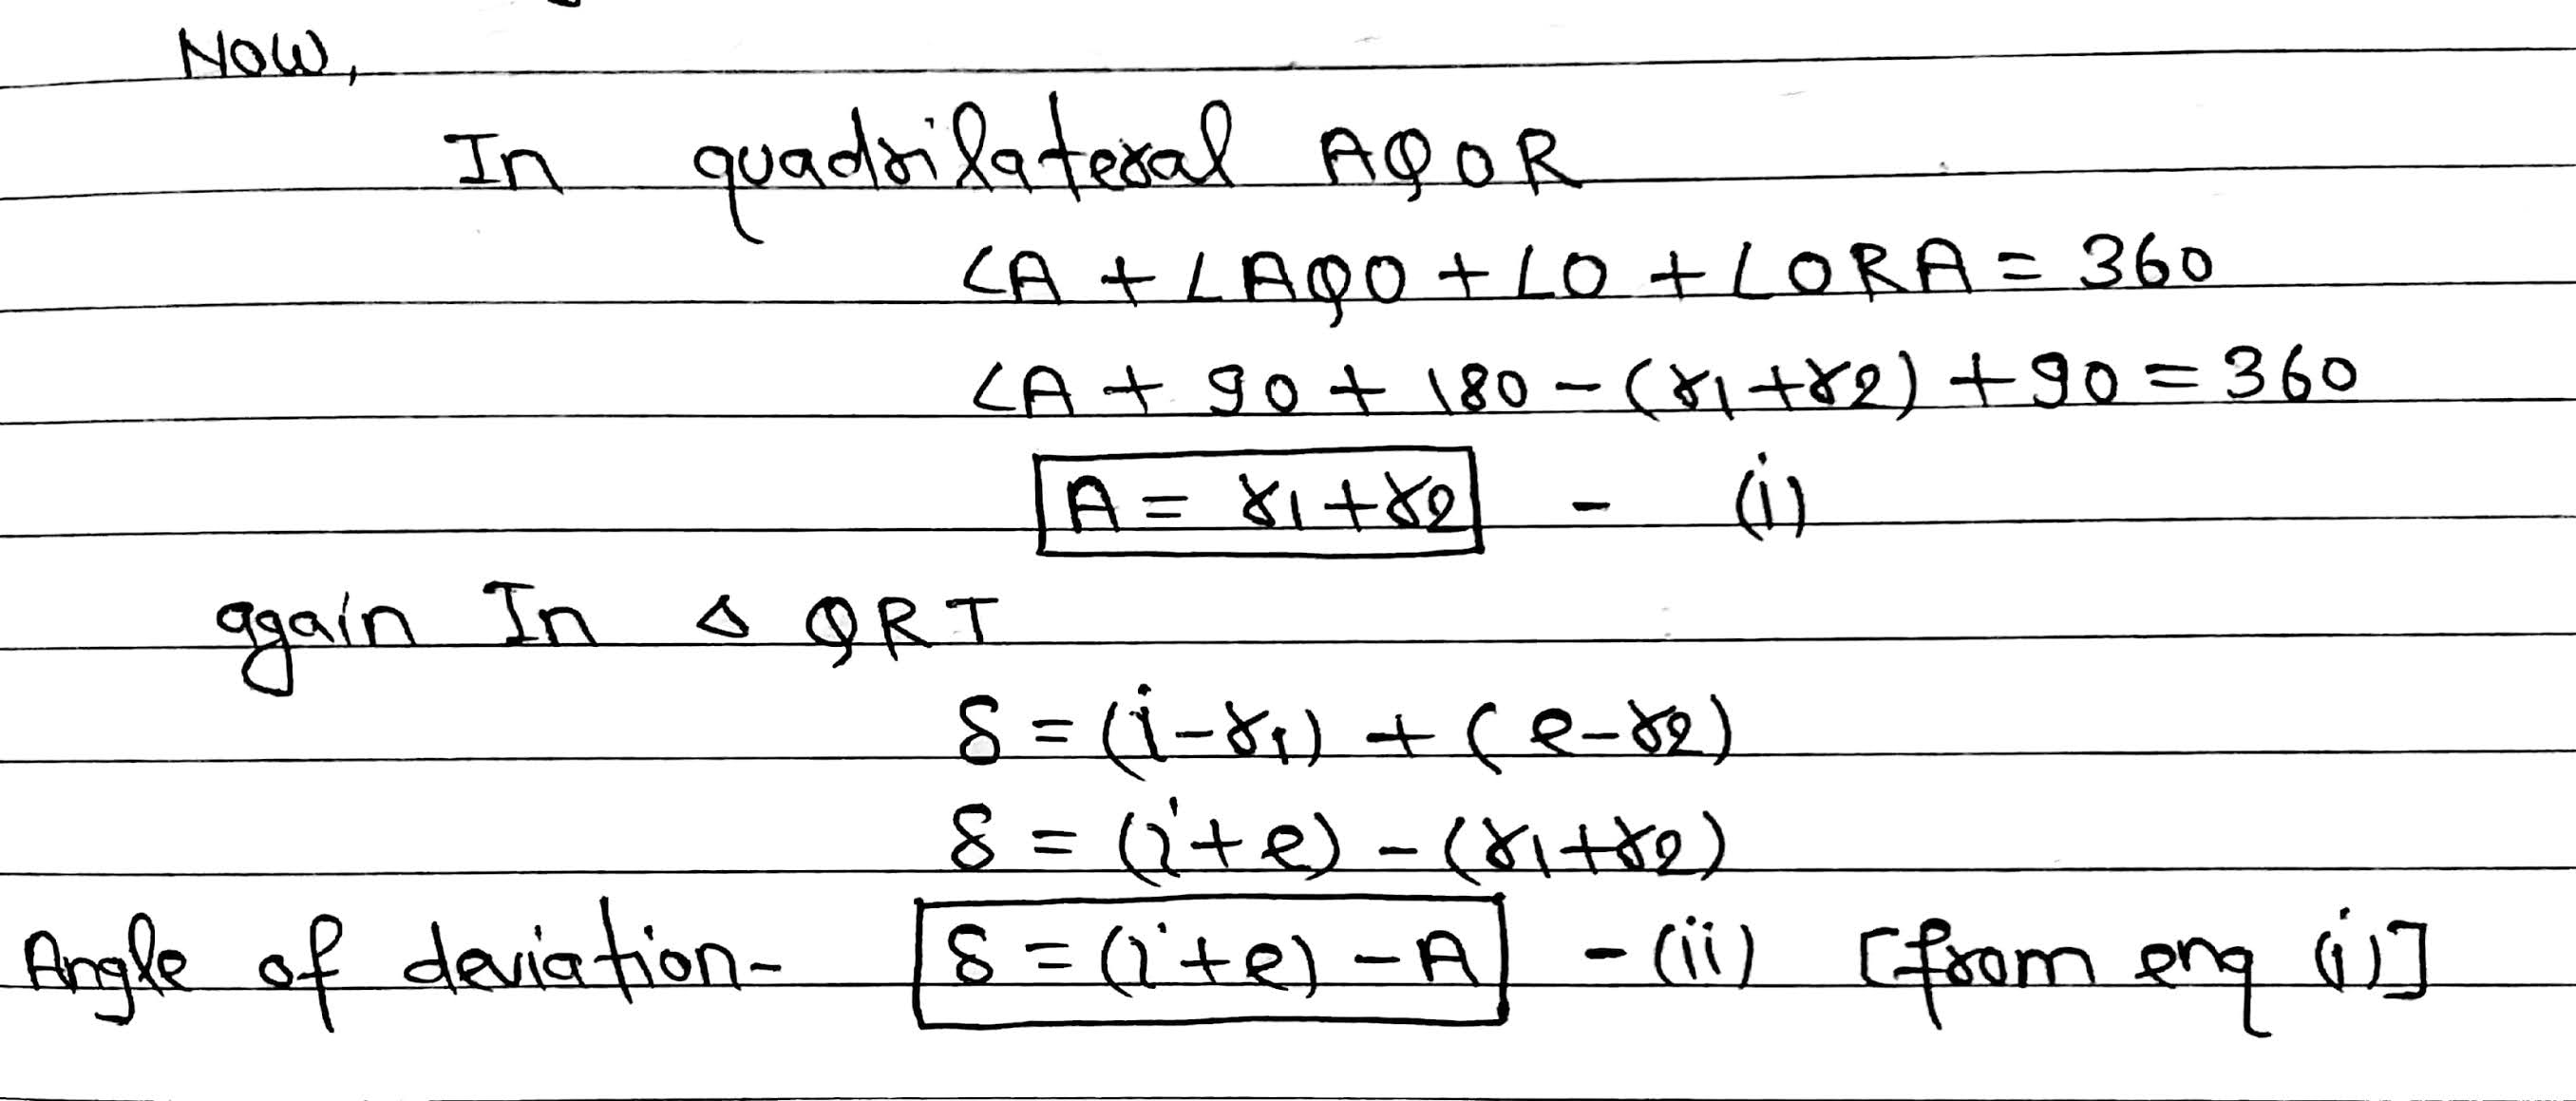 Now,
In quadrilateral AQOR
∠A + ∠AQO + ∠O + ∠ORA = 360
∠A + 90 + 180 - (r1+r2) + 90 = 360
A = r1+r2 - (i)
again In Δ QRT
δ = (i-r1) + (e-r2)
δ = (i+e) - (r1+r2)
Angle of deviation- δ = (i+e) - A - (ii) [from enq (i)]